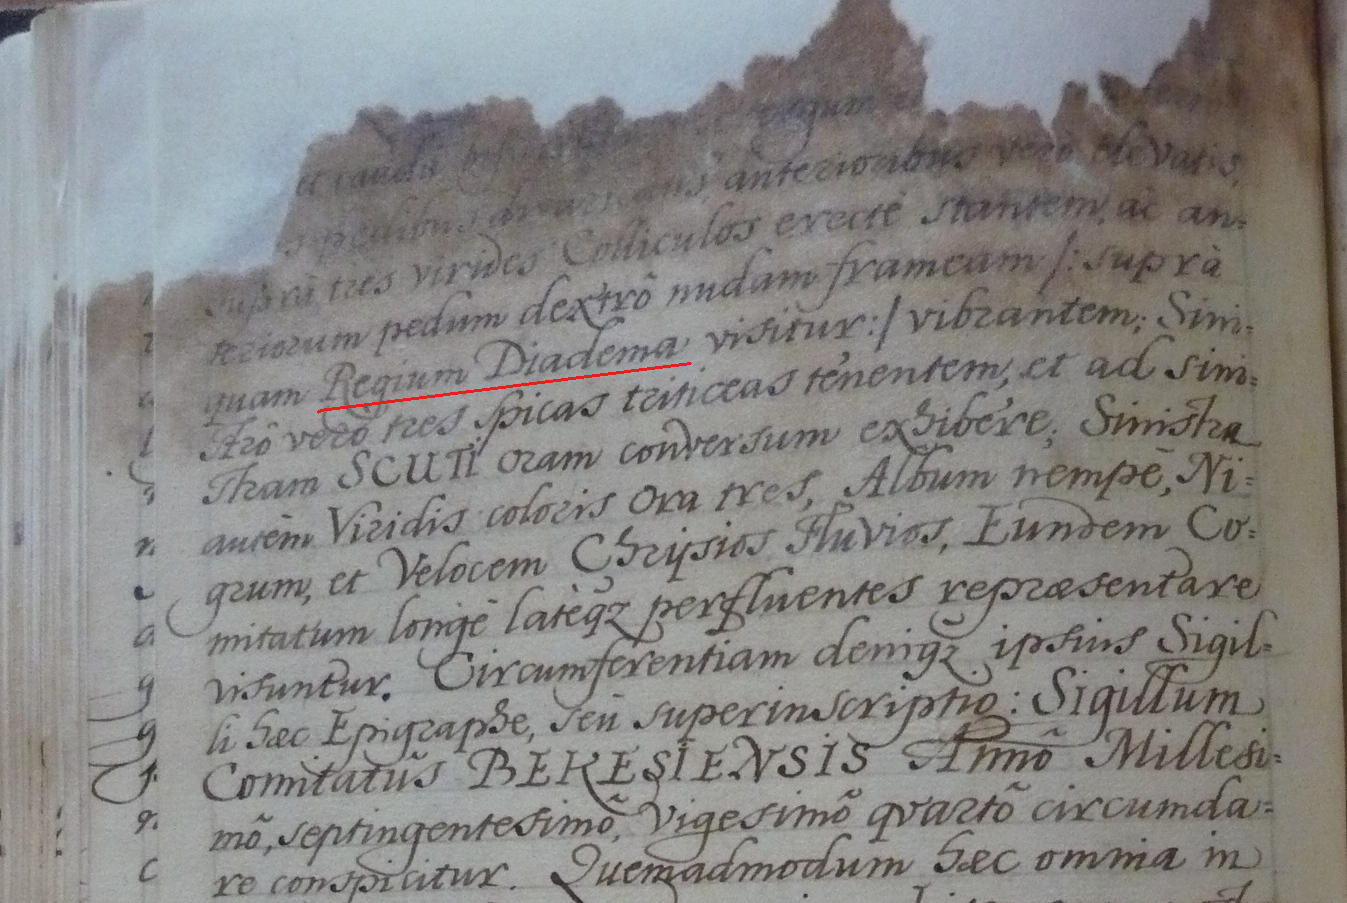 et cauda regum
pedibus anterioribus verò elevatis,
supra tres virides Colliculos erectè stantem, ac an=
teriorum pedum dextrô nudam frameam /: suprà
quam Regium Diadema visitur :/ vibrantem; Sini=
strô verò tres spicas triticeas tenentem, et ad sini=
stram SCUTI oram conversum exhibêre; Sinistra
autèm Viridis coloris Ora tres, Album nempè, Ni=
grum, et Velocem Chrysios Fluvios, Eundem Co=
mitatum longè latèqz perfluentes repræsentare
visuntur. Circumferentiam deniqz ipsius Sigil=
li hæc Epigraphe, seù superinscriptio: Sigillum
Comitatûs BEKESIENSIS Annô Millesi=
mô, septingentesimô, Vigesimô quartô circumda=
re conspicitur. Quemadmodum hæc omnia in